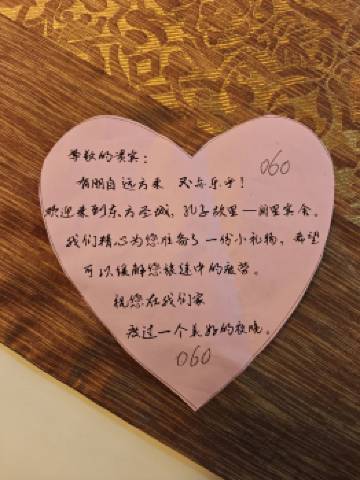 尊敬的贵宾：
060
有朋自远方来 不亦乐乎！
欢迎来到东方圣城，孔子故里—阙里宾舍。
我们精心为您准备了一份小礼物，希望
可以缓解您旅途中的疲劳。
祝您在我们家
度过一个美好的夜晚。
060